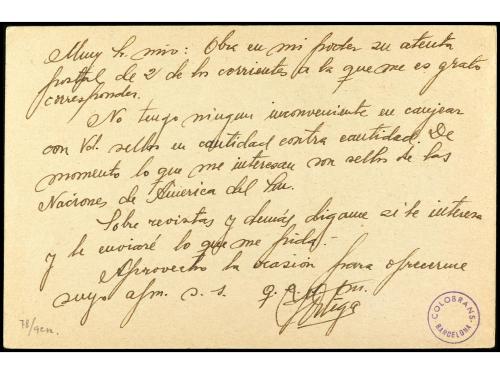 Muy Sr. mio: Obra en mi poder su atenta
postal de 2 de los corrientes a la que me es grato
corresponder.
No tengo ningun inconveniente en canjear
con Vd. sellos en cantidad contra cantidad. De
momento lo que me interesan son sellos de las
Naciones de America del Sur.
Sobre revistas y demás digame si le interesa
y le enviaré lo que me pida.-
Aprovecho la ocasión para ofrecerme
suyo afm. s. s. q. e. s. m.
Ortega
COLOBRANS.
BARCELONA
78/